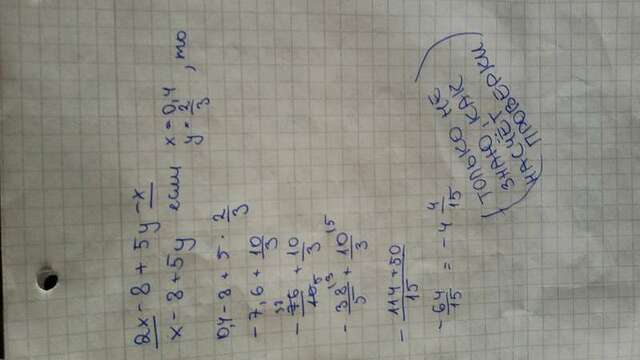 2x - 8 + 5y - x
x - 8 + 5y если x = 0,4 y = 2/3, то
0,4 - 8 + 5 · 2/3
- 7,6 + 10/3
- 76/10 + 10/3 38 5
- 38/5 + 10/3 13 15
- 114 + 50/15
- 64/15 = - 4 4/15
(ТОЛЬКО НЕ
ЗНАЮ, КАК
НАСЧЁТ
ПРОВЕРКИ)